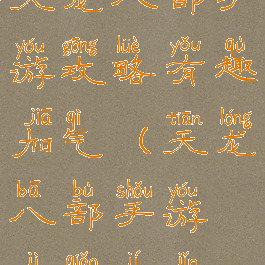 天龙八部手
yóu gōng lüè yǒu qù
游攻略有趣
jiā qì tiān lóng
加气（天龙
bā bù shǒu yóu
八部手游